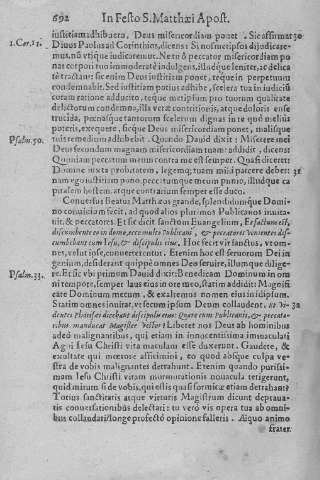 692 In Festo S. Matthæi Apost.
iustitiam adhibuero, Deus misericordiam ponet. Sic affirmat 30
1. Cor. 11. Diuus Paulus ad Corinthios, dicens: Si nosmetipsos dijudicaremus,
nõ vtique iudicaremur. Ne tu ò peccator misericordiam po
nas corpori tuo immoderatè indulgens,
té tractans: sic enim Deus iustitiam ponet, teque in perpetuum
condemnabit. Sed iustitiam potius adhibe, scelera tua in iudicij
coram ratione adducito, teque metipsum pro tuorum qualitate
delictorum condemna, illa verè contritionis, atque doloris ense
trucida, pœnasque tantorum scelerum dignas in te quo melius
poteris, exequere, sicque Deus misericordiam ponet, malisque
Psalm. 50. tuis remedium adhibebit. Quando Dauid dixit: Miserere mei
Deus secundum magnam misericordiam tuam: addidit, dicens:
Quoniam peccatum meum contra me est semper. Quasi diceret:
Domine iuxta probatorem, legemq; tuam mihi parcere debes: 31
nam ego iustitiam pono, peccatumque meum punio, illudque ca
pitalem hostem, atque contrarium semper esse duco.
Conuersus Beatus Matthæus grande, splendidumque Domi-
no conuiuium fecit, ad quod alios plurimos Publicanos inuita-
uit, & peccatores. Et sic dicit sanctum Euangelium, Et factum est,
discumbente eo in domo, ecce multi Publicani, & peccatores venientes dis-
cumbebant cum Iesu, & discipulis eius. Hoc fecit vir sanctus, vt om-
nes, velut ipse, conuerterentur. Etenim hoc est seruorum Dei in
genium, desiderant quippè omnes Deo seruire, illumque dilige-
Psalm. 33. re. Et sic vbi primum Dauid dixit: Benedicam Dominum in om
ni tempore, semper laus eius in ore meo, statim addidit: Magnifi
cate Dominum mecum, & exaltemus nomen eius in idipsum.
Statim omnes inuitat, vt secum ipsum Deum collaudent. Et Vi- 32
dentes Pharisæi dicebant discipulis eius: Quare cum Publicanis, & peccato-
ribus manducat Magister Vester? Liberet nos Deus ab hominibus
adeò malignantibus, qui etiam in innocentissima immaculati
Agni Iesu Christi vita maculam esse duxerunt. Gaudete, &
exultate qui mœrore afficimini, eo quod absque culpa ve-
stra de vobis malignantes detrahunt. Etenim quando purissi-
mam Iesu Christi vitam murmurationis nouacula tetigerunt,
quid mirum si de vobis, qui estis quasi formicæ etiam detrahant?
Totius sanctitatis atque virtutis Magistrum dicunt deprauа-
tis conuersationibus delectari: tu verò vis opera tua ab omni-
bus collaudari? longe profectò opinione falleris. Aliquo animo
frater.